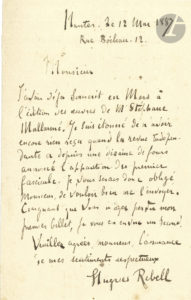 Nantes. Le 12 Mai 1887
Rue Boileau. 12.
Monsieur
J'avais déjà souscrit en Mars à
l'édition des œuvres de M Stéphane
Mallarmé. Je suis étonné de n'avoir
encore rien reçu quand la revue Indépen-
dante a depuis une dizaine de jours
annoncé l'apparition du premier
fascicule. Je vous serais donc obligé
Monsieur, de vouloir bien me l'envoyer.
Craignant que vous n'ayez perdu mon
premier billet, je vous en envoie un second.
Veuillez agréer monsieur, l'assurance
de mes sentiments respectueux
Hugues Rebell